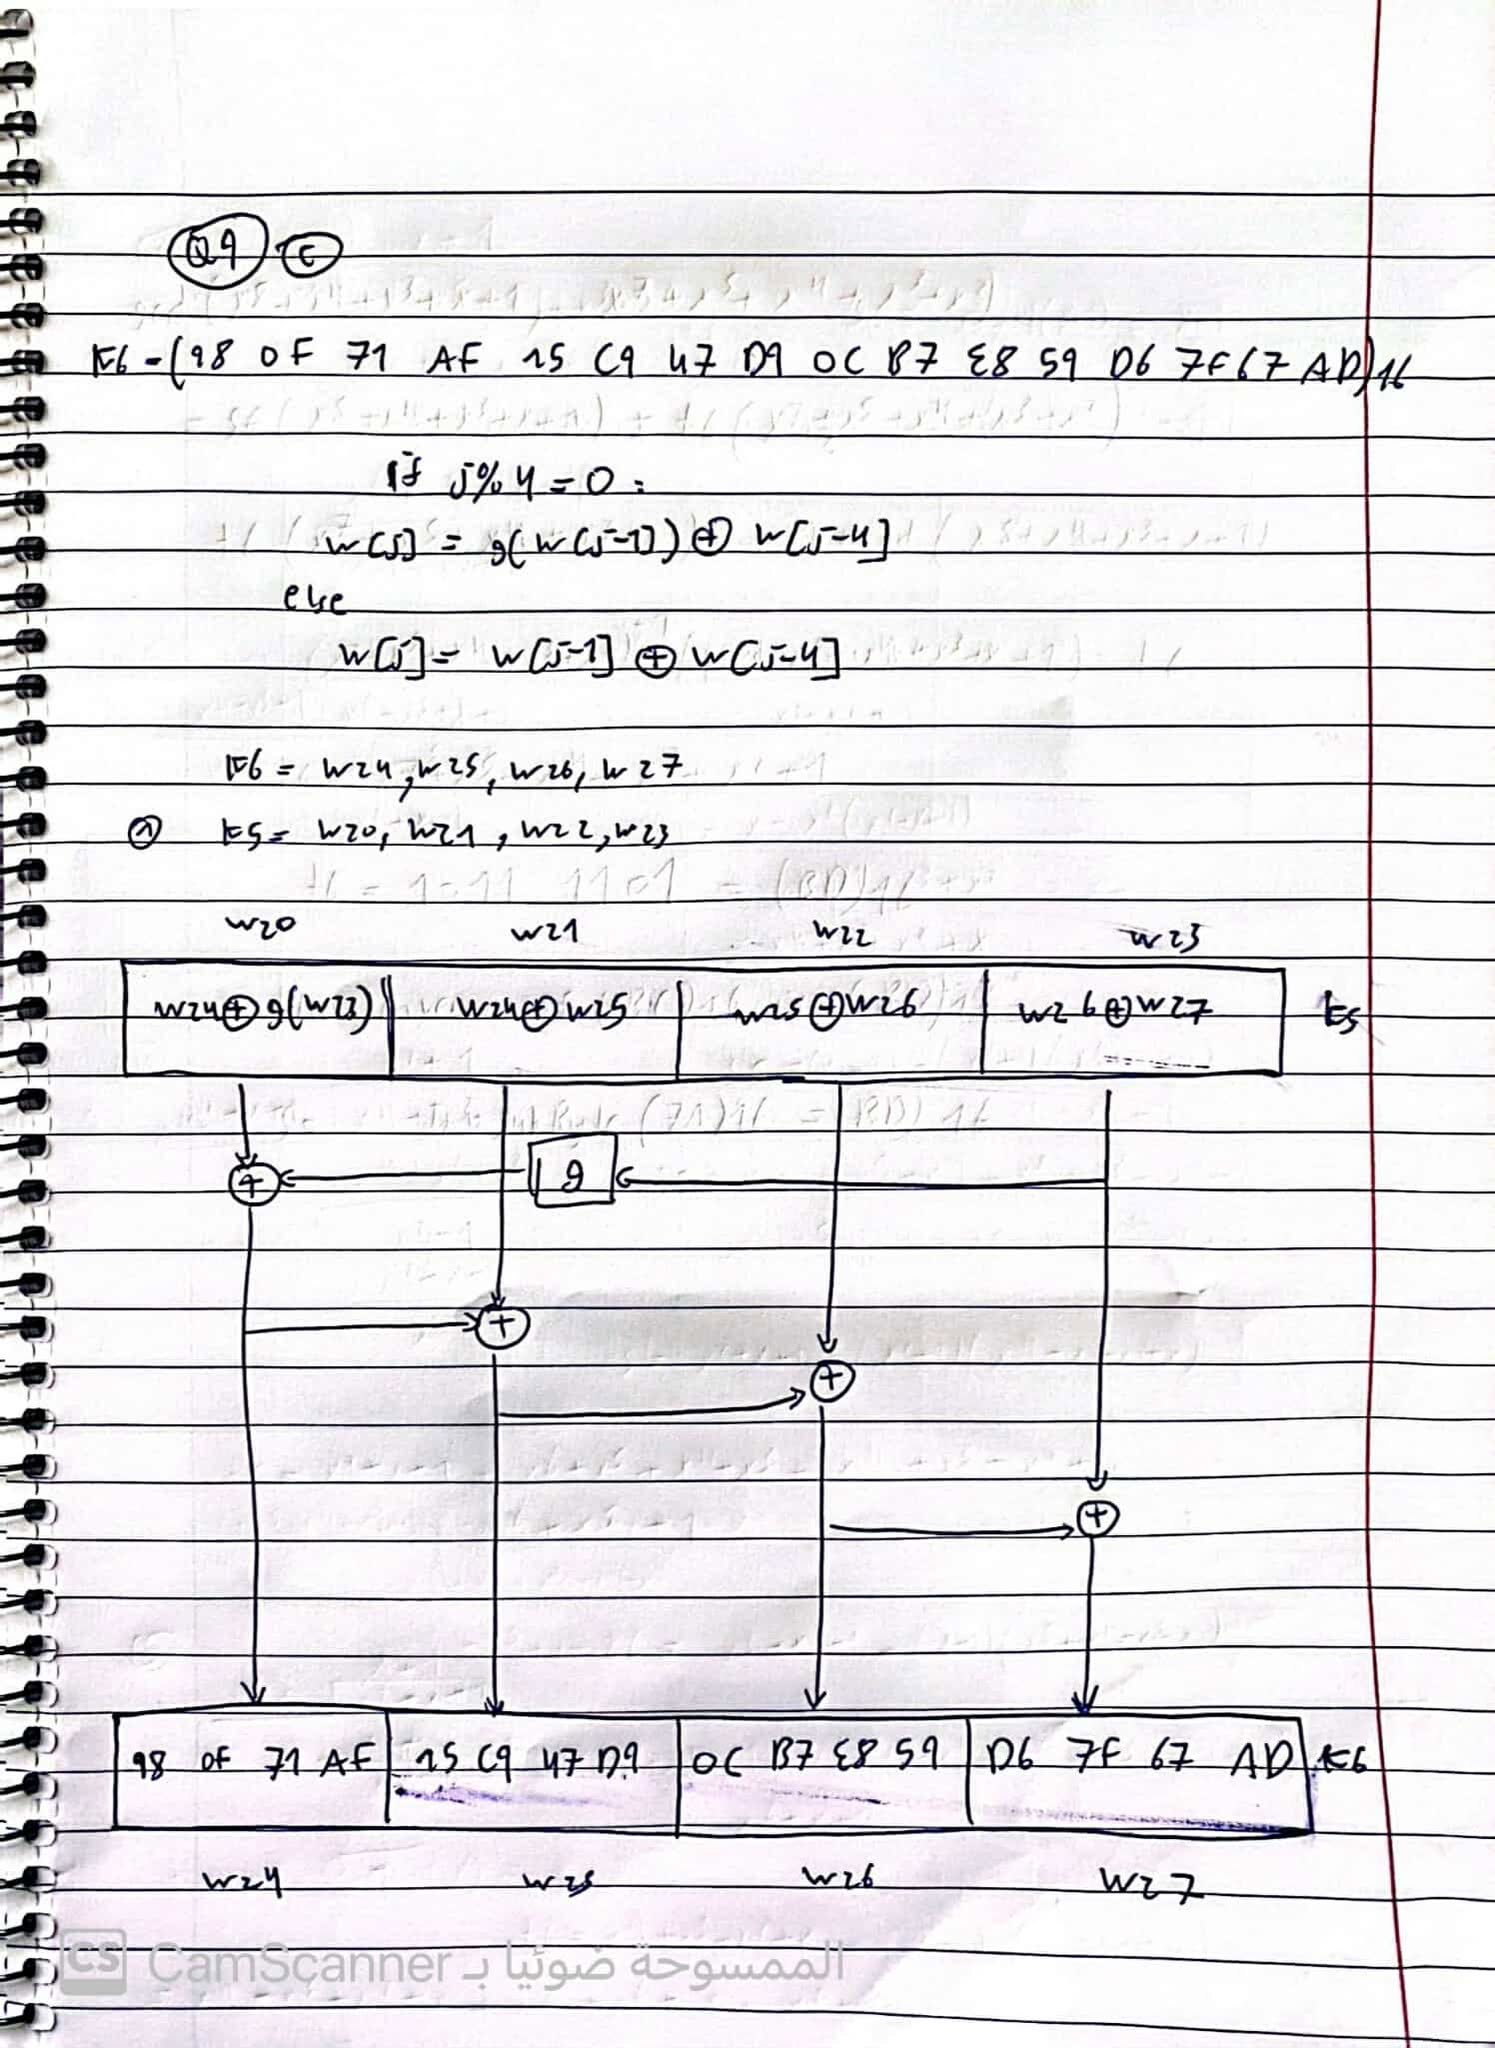 Q9 C
K6 = (98 0F 71 AF 15 C9 47 D9 0C B7 E8 59 D6 7F 67 AD)16
if j%4=0:
w[j] = g(w[j-1]) ⊕ w[j-4]
else
w[j] = w[j-1] ⊕ w[j-4]
K6 = w24, w25, w26, w27
① K5 = w20, w21, w22, w23
w20 w21 w22 w23
w24⊕g(w23) w24⊕w25 w25⊕w26 w26⊕w27 K5
g
+
+
+
+
98 0F 71 AF 15 C9 47 D9 0C B7 E8 59 D6 7F 67 AD K6
w24 w25 w26 w27
CS CamScanner الممسوحة ضوئيا بـ